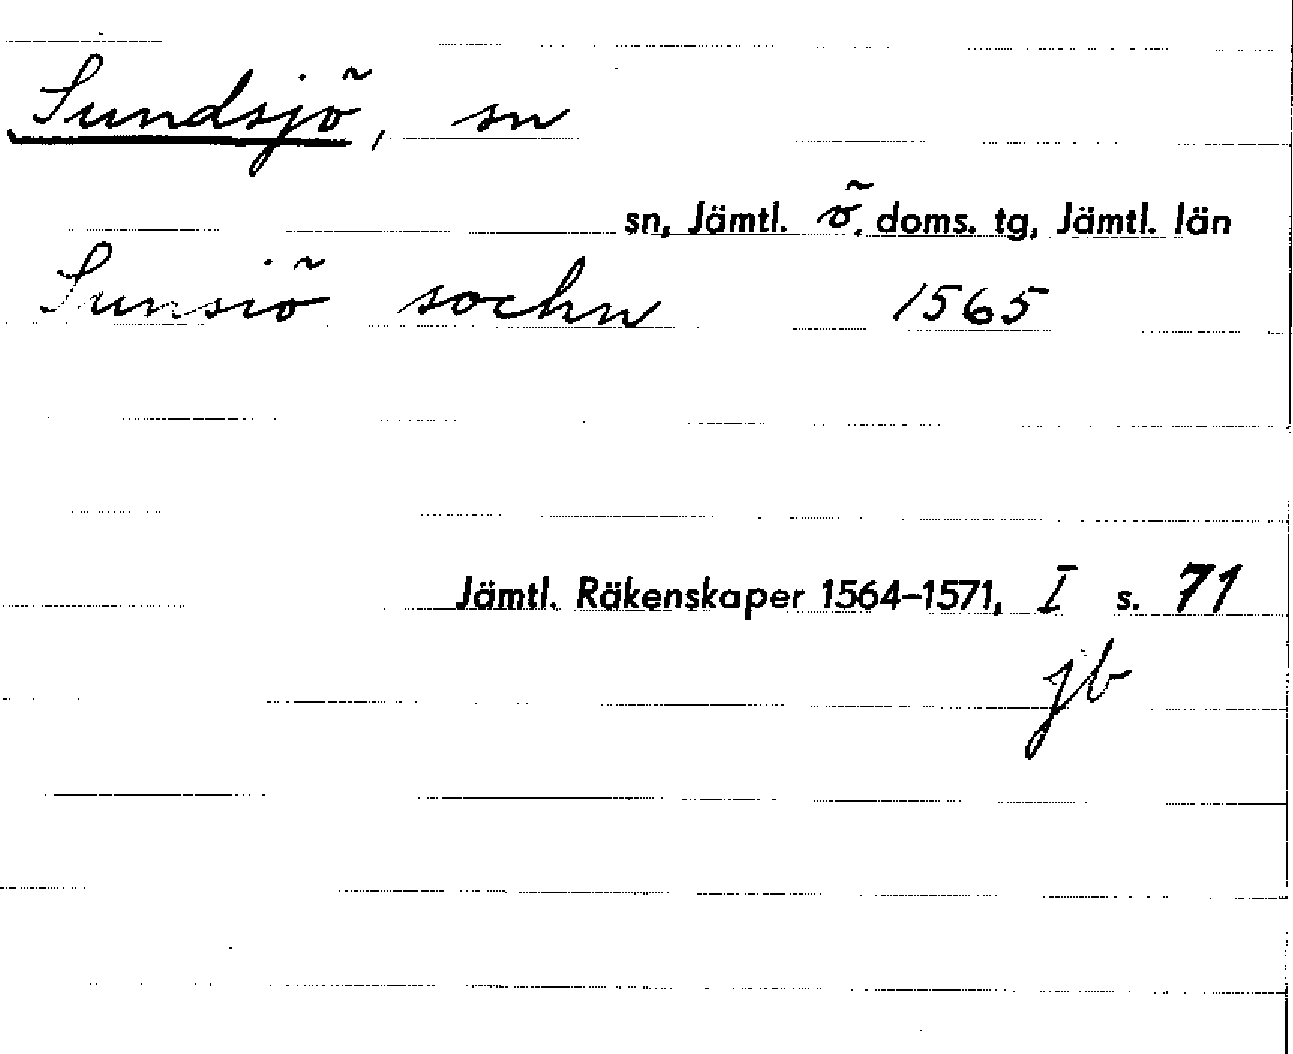 Sundsjö, sn
sn, Jämtl. ö. doms. tg, Jämtl. län
Sunsiö sochn 1565
Jämtl. Räkenskaper 1564–1571, I s. 71
jb